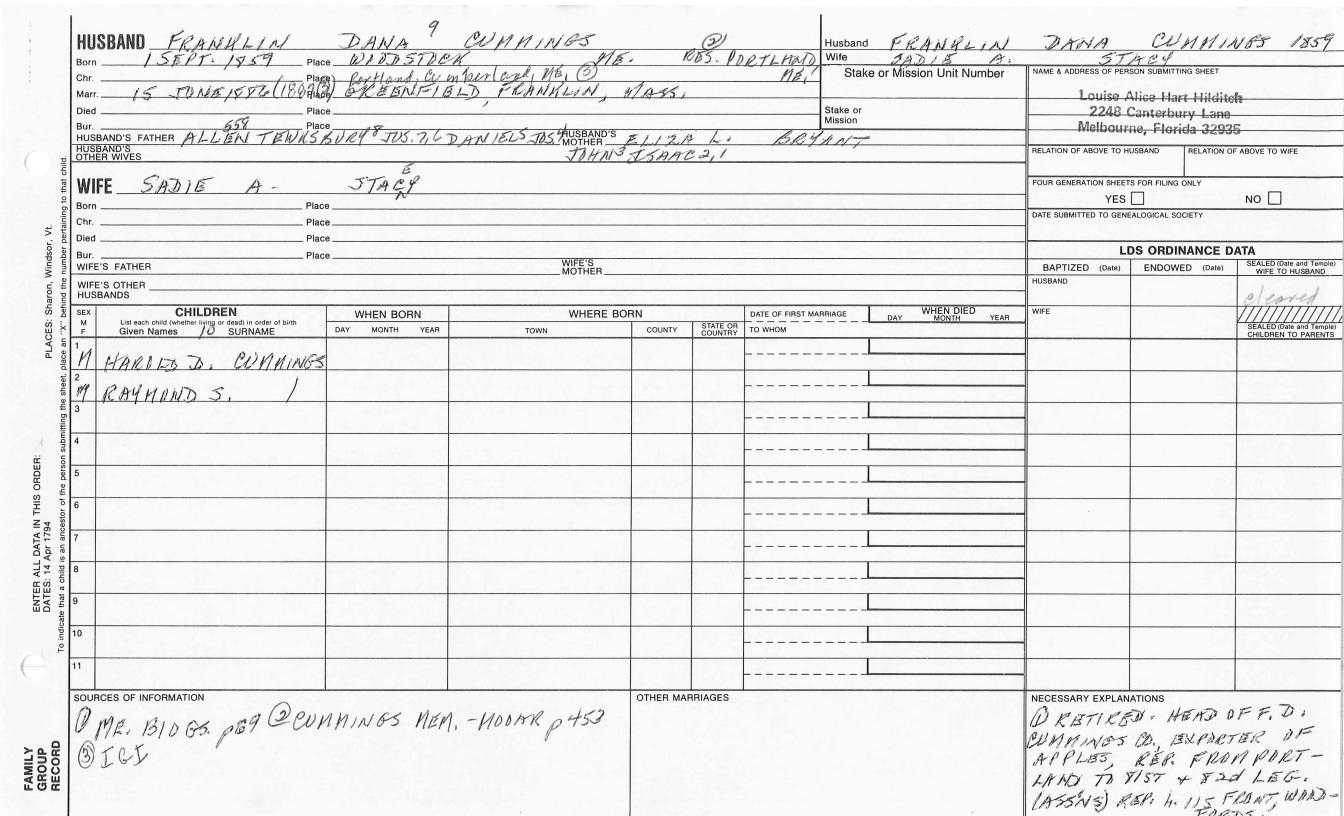 9
HUSBAND FRANKLIN DANA CUMMINGS ②
Born 1 SEPT. 1859 Place WOODSTOCK ME. RES. PORTLAND
ME.
Chr. Place Portland, Cumberland, ME, ③
Marr. 15 JUNE 1886 Place GREENFIELD, FRANKLIN, MASS.
Died Place
Bur. Place
HUSBAND'S FATHER ALLEN TEWKSBURY 8 JOS. 7,6 DANIEL 5 JOS. 4 HUSBAND'S MOTHER ELIZA L. BRYANT
HUSBAND'S OTHER WIVES JOHN 3 ISAAC 2,1
E
WIFE SADIE A. STACY
Born Place
Chr. Place
Died Place
Bur. Place
WIFE'S FATHER WIFE'S MOTHER
WIFE'S OTHER HUSBANDS
Husband FRANKLIN DANA CUMMINGS 1859
Wife SADIE A. STACY
Stake or Mission Unit Number
Stake or Mission
NAME & ADDRESS OF PERSON SUBMITTING SHEET
Louise Alice Hart Hilditch
2248 Canterbury Lane
Melbourne, Florida 32935
RELATION OF ABOVE TO HUSBAND RELATION OF ABOVE TO WIFE
FOUR GENERATION SHEETS FOR FILING ONLY
YES NO
DATE SUBMITTED TO GENEALOGICAL SOCIETY
LDS ORDINANCE DATA
BAPTIZED (Date) ENDOWED (Date) SEALED (Date and Temple) WIFE TO HUSBAND
HUSBAND cleared
WIFE
SEALED (Date and Temple) CHILDREN TO PARENTS
SEX M F
CHILDREN
List each child (whether living or dead) in order of birth
Given Names 10 SURNAME
WHEN BORN
DAY MONTH YEAR
WHERE BORN
TOWN COUNTY STATE OR COUNTRY
DATE OF FIRST MARRIAGE
TO WHOM
WHEN DIED
DAY MONTH YEAR
1 M HAROLD D. CUMMINGS
2 M RAYMOND S. /
3
4
5
6
7
8
9
10
11
SOURCES OF INFORMATION
① ME. BIOGS. p89 ② CUMMINGS MEM. - MOOAR p 453
③ IGI
OTHER MARRIAGES
NECESSARY EXPLANATIONS
① RETIRED. HEAD OF F.D.
CUMMINGS CO., EXPORTER OF
APPLES, REP. FROM PORT-
LAND TO 81ST & 82d LEG.
(ASS'NS) REP. h. 115 FRONT, WOOD-
FORDS.
PLACES: Sharon, Windsor, Vt.
ENTER ALL DATA IN THIS ORDER:
DATES: 14 Apr 1794
To indicate that a child is an ancestor of the person submitting the sheet, place an "X" behind the number pertaining to that child.
FAMILY
GROUP
RECORD